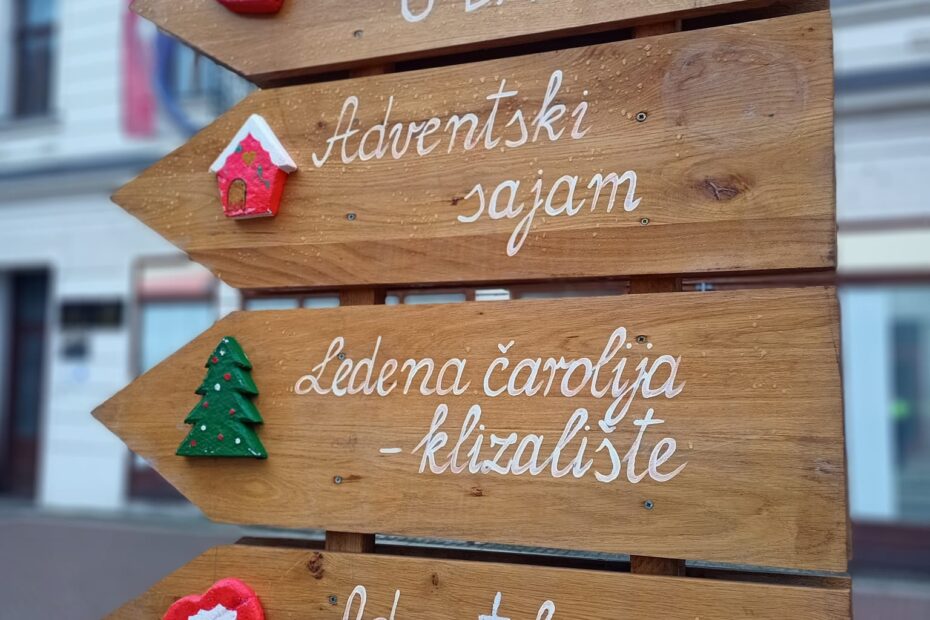 Adventski
sajam
Ledena čarolija
- klizalište